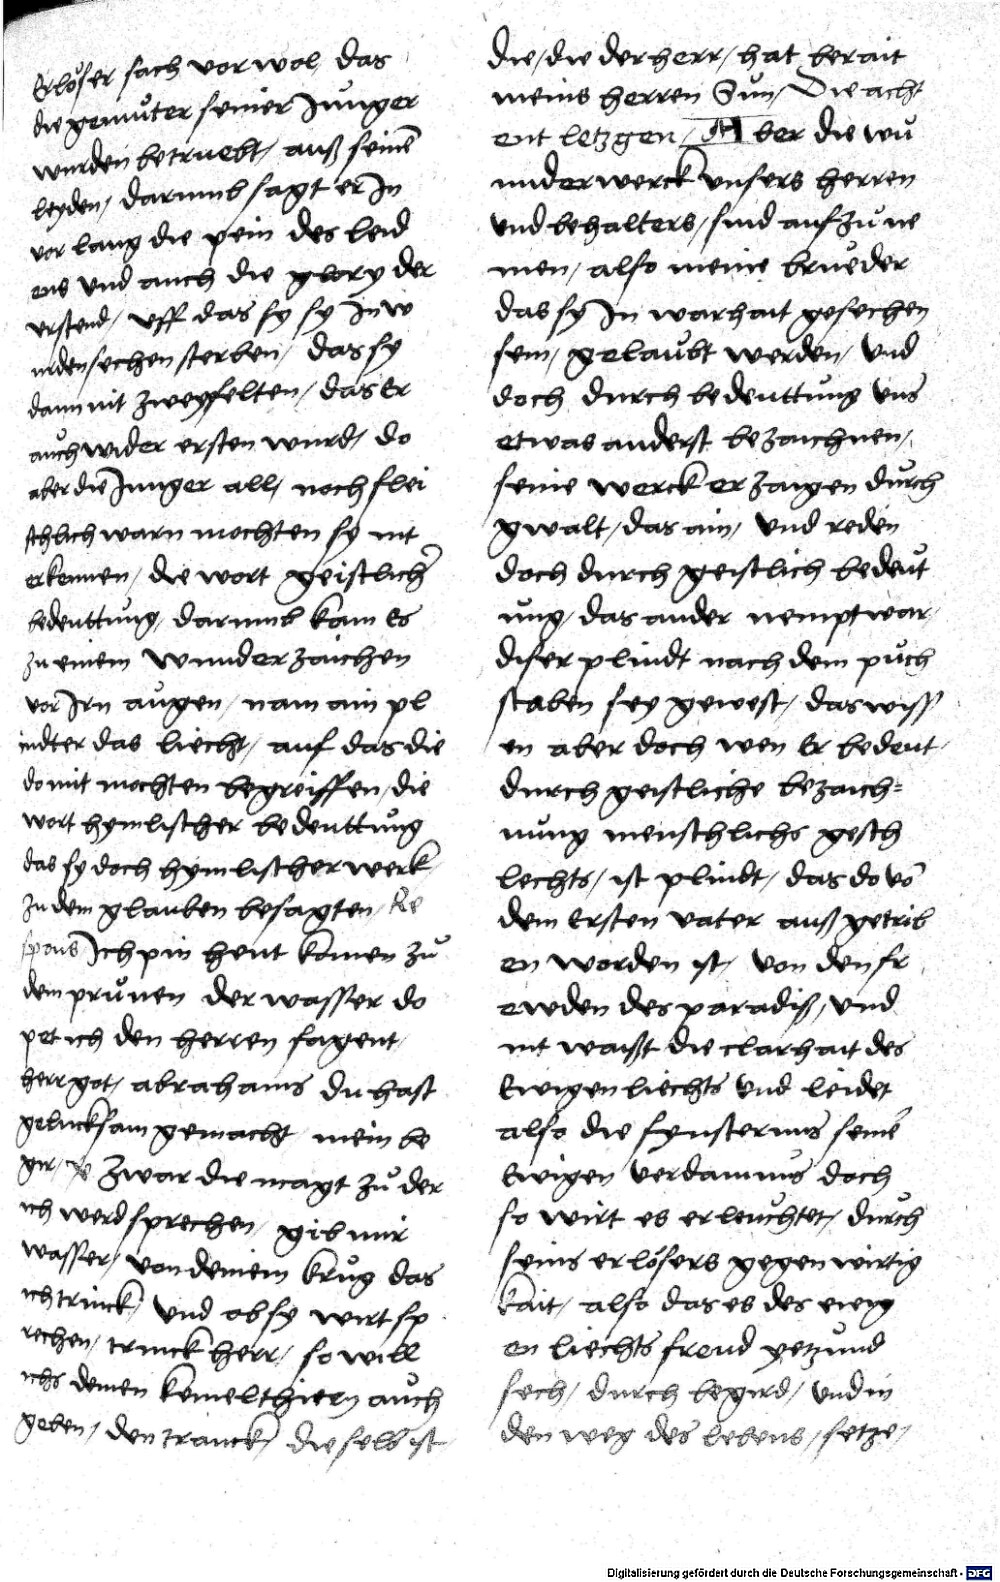 Erlöser sach vor wol das
die gemüter seiner Junger
wurden betruebt / auß seinē
leyden / darumb sagt er In
vor lang die pein des leid
ens und auch die glory der
erstend / uff das sy sy In w
urden sechen sterben / das sy
dann nit zweyfelten / das Er
auch wider ersten wurd / do
aber die Junger all / noch flei
schlich warn mochten sy nit
erkennen / die wort geistlichr̄
bedeuttung / darumb kam Es
zu einem wunderzaichen
vor Irn augen / nam ain pl
indter das liecht / auf das die
domit mochten begreiffen / die
wort hymlischer bedeuttung
das sy doch hymlischer werk
zu dem glauben besagten / Re
spons Ich pin heut komen zů
dem průnen der wasser do
pet ich den herren sagent /
herr got / abrahams du hast
glucksam gemacht mein be
gir / zwar die magt zů der
ich werd sprechen / gib mir
wasser / von deinem krůg das
ich trinck / und ob sy wirt sp
rechen / trinck herr / so will
ichs deinen kemelthiern auch
geben / den tranck / die selb ist
die / die der herr / hat berait
meins herren Sun / Die acht
ent letzgen / Aber die wů
nderwerck unsers herren
und behalters / sind auf zů ne
men / also meine brueder
das sy In warhait gesechen
sein / gelaubt werden / und
doch durch bedeuttung uns
etwas anderst bezaichnen /
seine werck erzaigen durch
gwalt / das ain / und reden
doch durch geistlich bedeut
ung / das ander nempt war /
diser plindt nach dem půch
staben sey gewest / das wiss
en aber doch wen Er bedeut /
durch geistliche bezaich=
nung menschlichs gesch
lechts / ist plindt / das do vō
dem Ersten vater auß getrib
en worden ist / von den fr
ewden des paradiß / und
nit waißt die clarhait des
Ewigen liechts und leidet
also die fynsternus seinē
Ewigen verdamnus doch
so wirt es erleuchtet / durch
seins erlösers gegenwirtig
kait / also das es des ewig
en liechts freud yetzund
sech / durch begird / und in
den weg des lebens / setze /
Digitalisierung gefördert durch die Deutsche Forschungsgemeinschaft - DFG